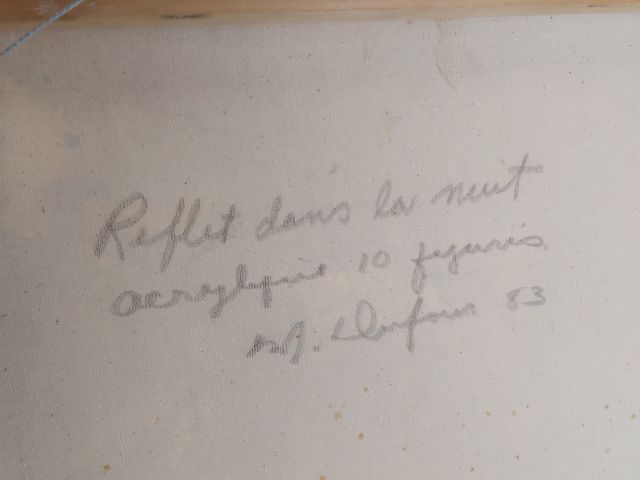 Reflet dans la nuit
acrylique 10 figures
Dufour 83